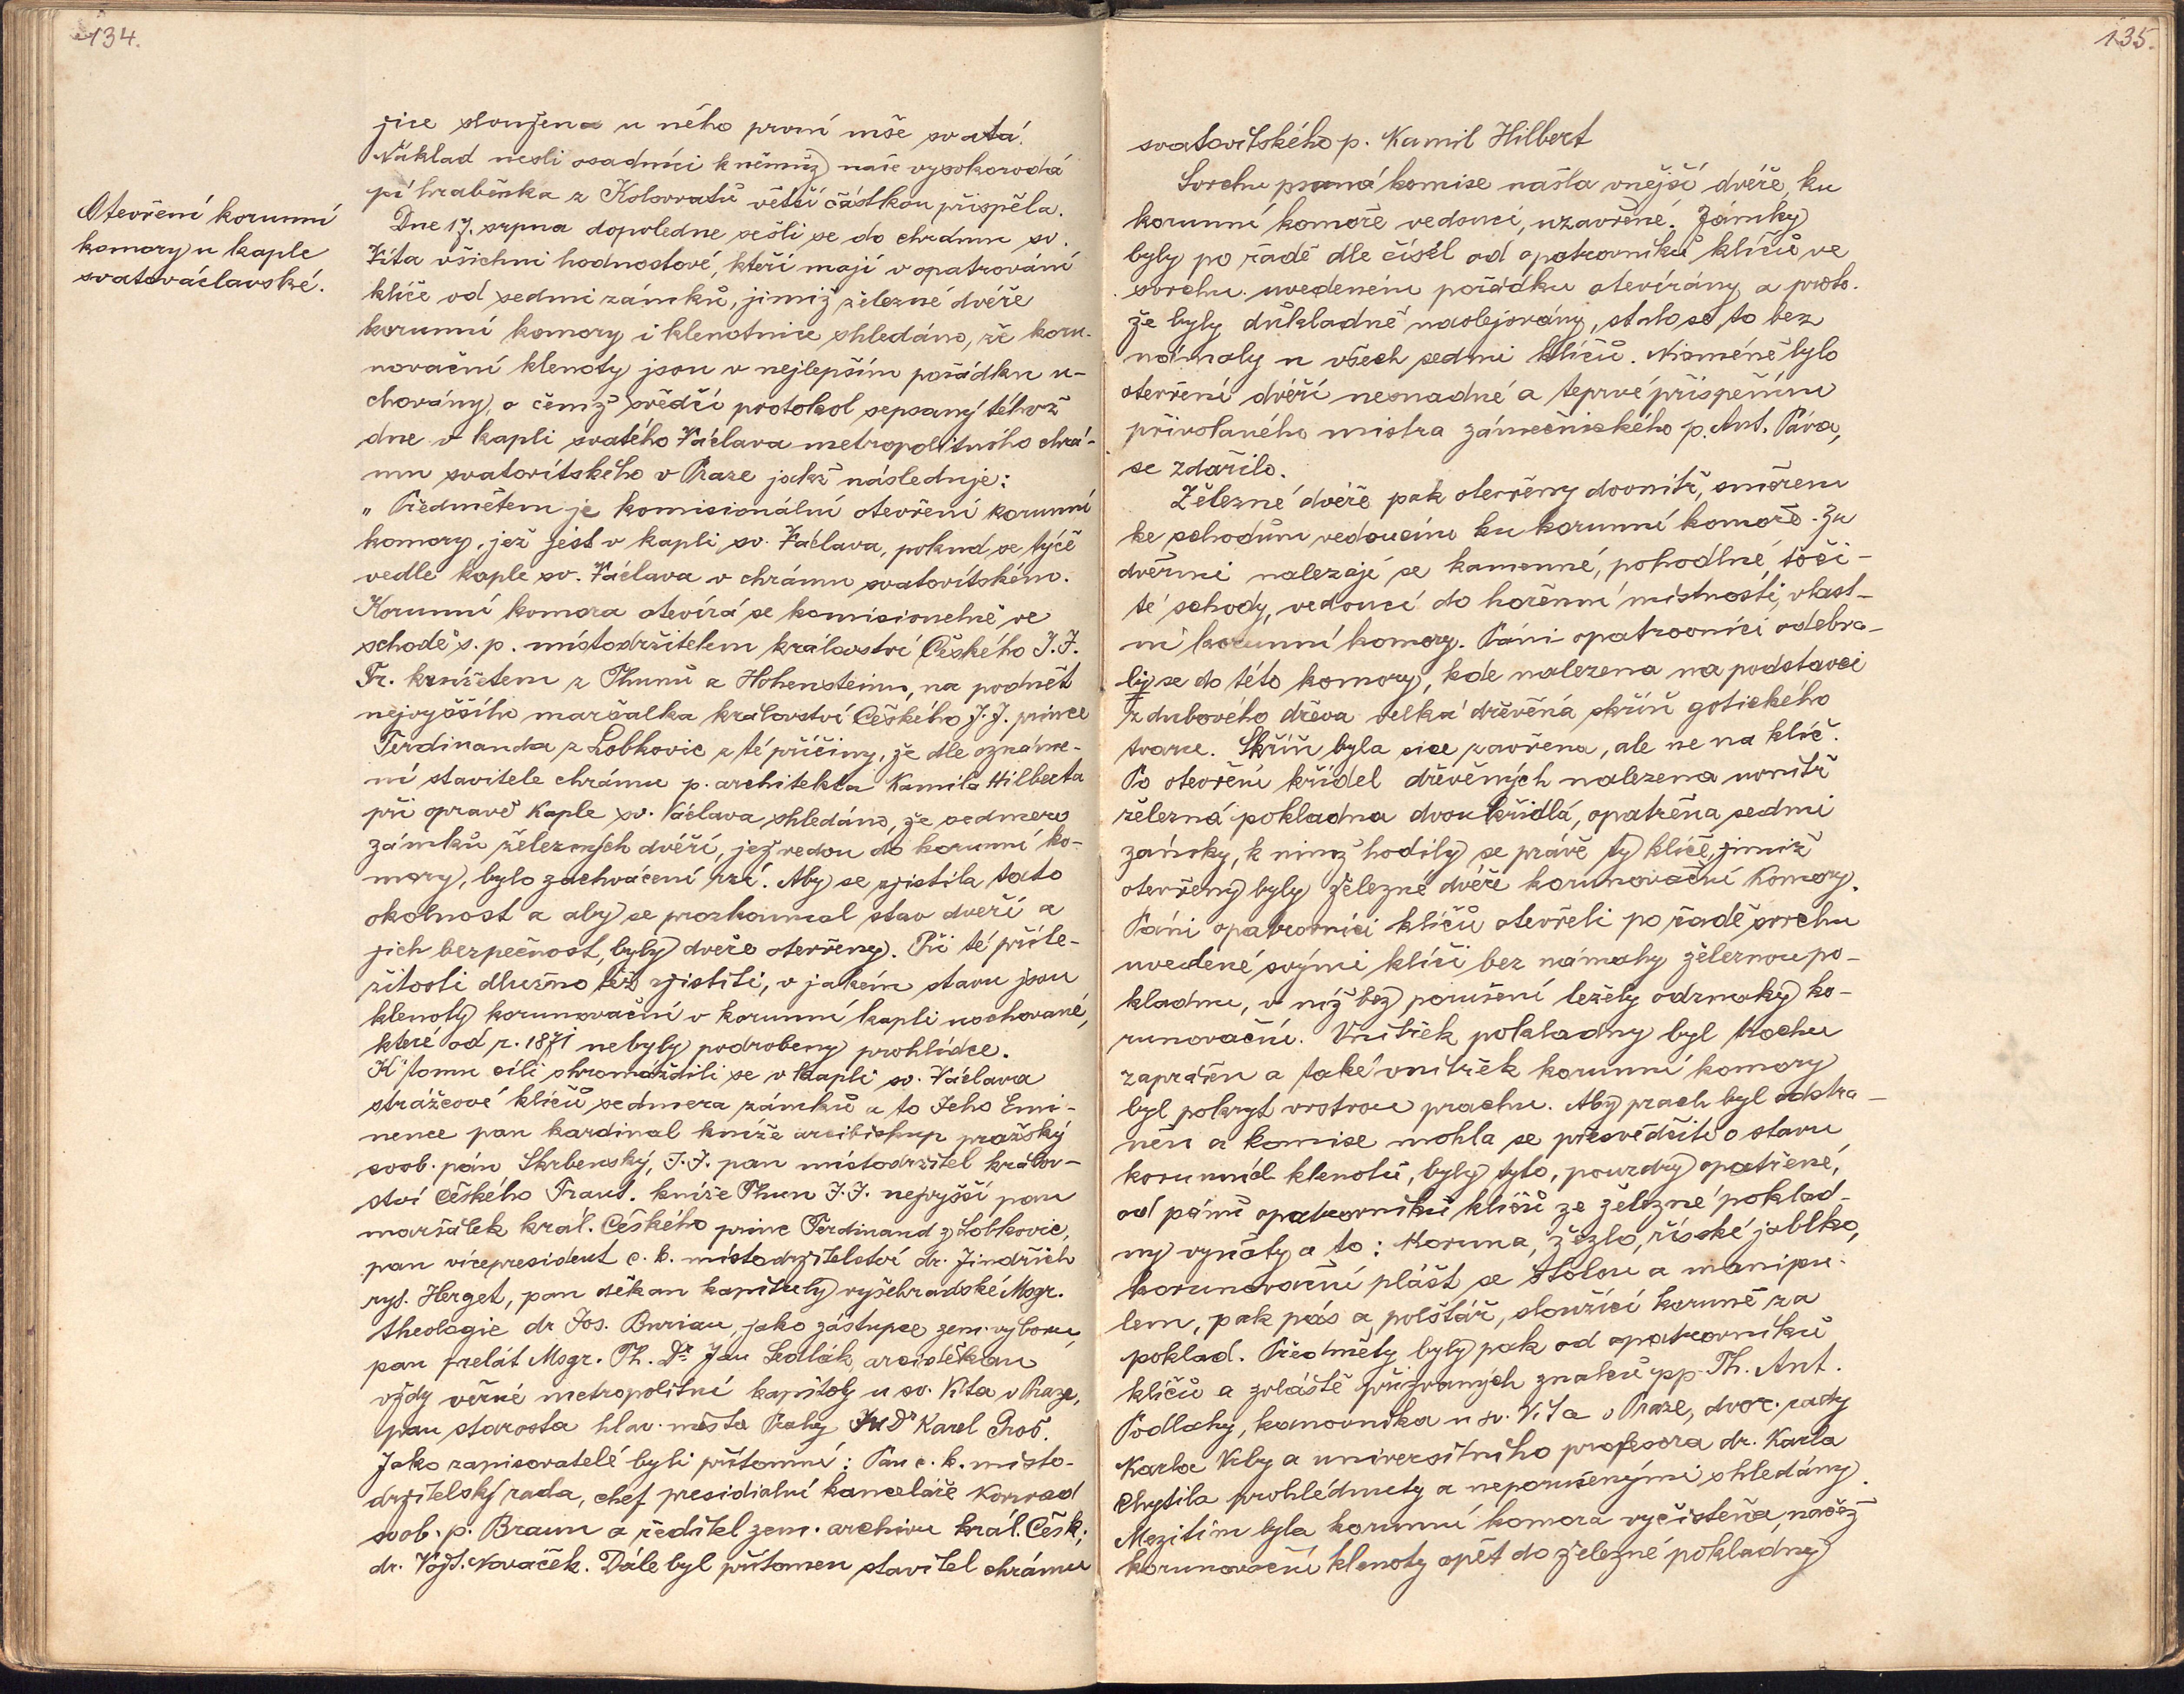 134.
Otevření korunní
komory u kaple
svatováclavské.
jice sloužena u něho první mše svatá.
Náklad nesli osadníci k němuž naše vysokorodá
pí hraběnka z Kolovratů větší částkou přispěla.
Dne 17. srpna dopoledne sešli se do chrámu sv.
Víta všichni hodnostové, kteří mají v opatrování
klíče od sedmi zámků, jimiž železné dvéře
korunní komory i klenotnice shledáno, že koru-
novační klenoty jsou v nejlepším pořádku u-
chovány, o čemž svědčí protokol sepsaný téhož
dne v kapli svatého Václava metropolitního chrá-
mu svatovítského v Praze jakž následuje:
„Předmětem je komisionální otevření korunní
komory, jež jest v kapli sv. Václava, pokud se týče
vedle kaple sv. Václava v chrámu svatovítském.
Korunní komora otevírá se komisionelně ve
schodě s. p. místodržitelem království Českého J. J.
Fr. knížetem z Thunů a Hohensteinu, na podnět
nejvyššího maršalka království Českého J. J. prince
Ferdinanda z Lobkovic z té příčiny, že dle oznáme-
ní stavitele chrámu p. architekta Kamila Hilberta
při opravě kaple sv. Václava shledáno, že sedmero
zámků železných dvéří, jež vedou do korunní ko-
mory, bylo zachváceni rzí. Aby se zjistila tato
okolnost a aby se prozkoumal stav dveří a
jich bezpečnost, byly dveře otevřeny. Při té příle-
žitosti dlužno též zjistiti, v jakém stavu jsou
klenoty korunovační v korunní kapli uschované,
které od r. 1871 nebyly podrobeny prohlídce.
K tomu cíli shromáždili se v kapli sv. Václava
strážcové klíčů sedmera zámků a to Jeho Emi-
nence pan kardinal kníže arcibiskup pražský
svob. pán Skrbenský, J. J. pan místodržitel králov-
ství českého Frant. kníže Thun J. J. nejvyšší pan
maršálek král. Českého princ Ferdinand z Lobkovic,
pan vícepresident c. k. místodržitelství dr. Jindřich
ryt. Herget, pan děkan kapituly vyšehradské Msgr.
theologie dr Jos. Burian, jako zástupce zem. výboru,
pan prelát Msgr. Th. Dr. Jan Sedlák, arciděkan
vždy věrné metropolitní kapitoly u sv. Víta v Praze,
pan starosta hlav. města Prahy JUDr Karel Groš.
Jako zapisovatelé byli přítomni: Pan c. k. místo-
držitelský rada, chef presidialní kanceláře Konrad
svob. p. Braun a ředitel zem. archivu král. Česk.,
dr. Vojt. Nováček. Dále byl přítomen stavitel chrámu
135.
svatovítského p. Kamil Hilbert
Svrchu psaná komise našla vnější dvéře, ku
korunní komoře vedoucí, uzavřené. Zámky
byly po řadě dle čísel od opatrovníků klíčů ve
svrchu uvedeném pořádku otevírány a proto-
že byly důkladně naolejovány, stalo se to bez
námahy u všech sedmi klíčů. Nicméně bylo
otevření dvéří nesnadné a teprvé přispěním
přivolaného mistra zámečnického p. Ant. Páva,
se zdařilo.
Železné dvéře pak otevřeny dovnitř, směrem
ke schodům vedoucím ku korunní komoře. Za
dvéřmi nalezají se kamenné, pohodlné, toči-
té schody, vedoucí do hořenní místnosti, vlast-
ní korunní komory. Páni opatrovníci odebra-
ly se do této komory, kde nalezena na podstavci
z dubového dřeva velká dřevěná skříň gotického
tvaru. Skříň byla sice zavřena, ale ne na klíč.
Po otevření křídel dřevěných nalezena uvnitř
železná pokladna dvoukřídlá, opatřena sedmi
zámky, k nimž hodily se právě ty klíče, jimiž
otevřeny byly železné dvéře korunovační komory.
Páni opatrovníci klíčů otevřeli po řadě svrchu
uvedené svými klíči bez námahy železnou po-
kladnu, v níž bez porušení ležely odznaky ko-
runovační. Vnitřek pokladny byl trochu
zaprášen a také vnitřek korunní komory
byl pokryt vrstvou prachu. Aby prach byl odstra-
něn a komise mohla se přesvědčiti o stavu
korunních klenotů, byly tyto, pouzdry opatřené,
od pánů opatrovníků klíčů ze železné poklad-
ny vyňaty a to: Koruna, žezlo, říšské jablko,
korunovační plášť se štolou a manipu-
lem, pak pás a polštář, sloužící koruně za
poklad. Předměty byly pak od opatrovníků
klíčů a zvláště přizvaných znalců pp. Th. Ant.
Podlahy, kanovníka u sv. Víta v Praze, dvor. rady
Karla Vrby a universitního profesora dr. Karla
Chytila prohlédnuty a neporušenými shledány.
Mezitím byla korunní komora vyčistěna, načež
korunovační klenoty opět do železné pokladny